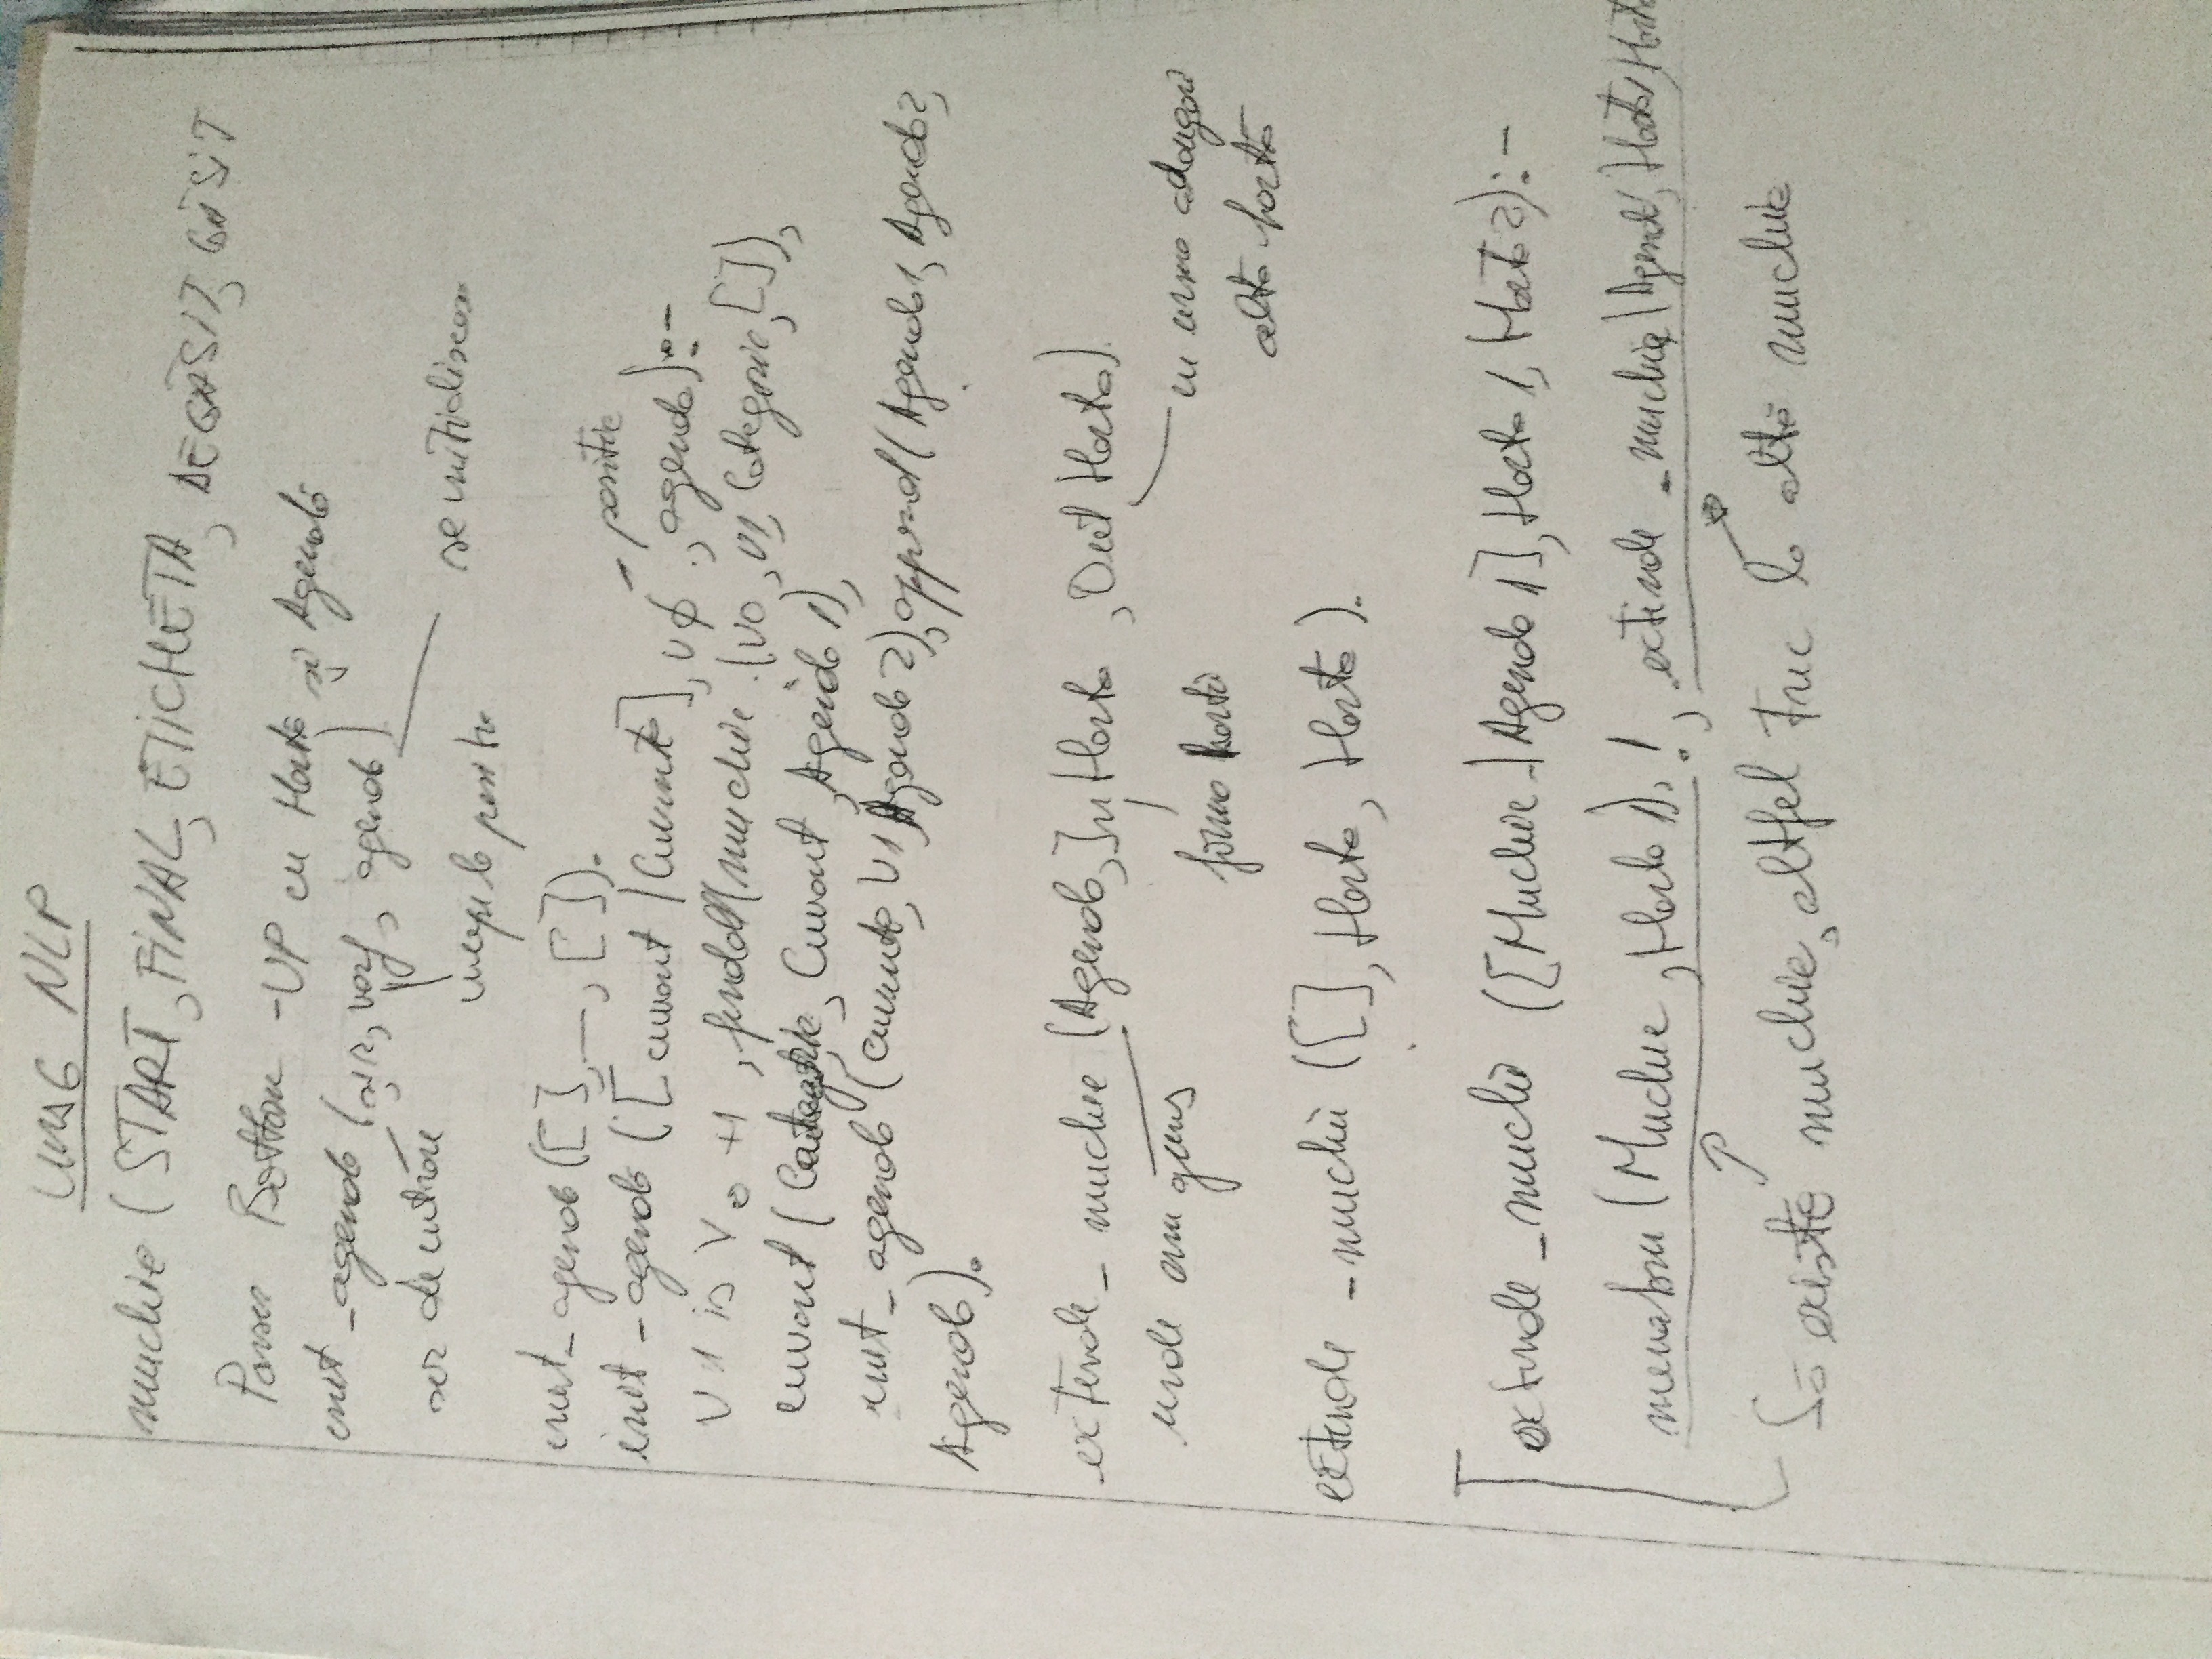 Curs 6 NLP
muchie (START, FINAL, ETICHETA, DEGĂSIT, GĂSIT
Parser Bottom -UP cu Hartă și Agendă
init_agenda (șir, varf, agenda)
șir de intrare
incepe la pozitia
se initializeaza
init_agenda ([], _, []).
- pozitie
init_agenda ([cuvant | Cuvinte], V0, agenda):-
V1 is V0 +1, findall(muchie (V0, V1, Categorie, []),
cuvant (Categorie, Cuvant, Agenda 1),
init_agenda (cuvinte, V1, Agenda 2), append (Agenda1, Agenda2,
Agenda).
extinde_muchie (Agenda, InHarta, OutHarta).
unde am
forma hartii
in urma adaugarii
alta harta
extinde_muchii ([], Harta, Harta).
extinde_muchii ([Muchie | Agenda 1], Harta 1, Harta 2):-
membru (Muchie, Harta 1), !, extinde_muchie (Agenda1, Harta1, Harta
Să existe muchie, altfel trec la altă muchie